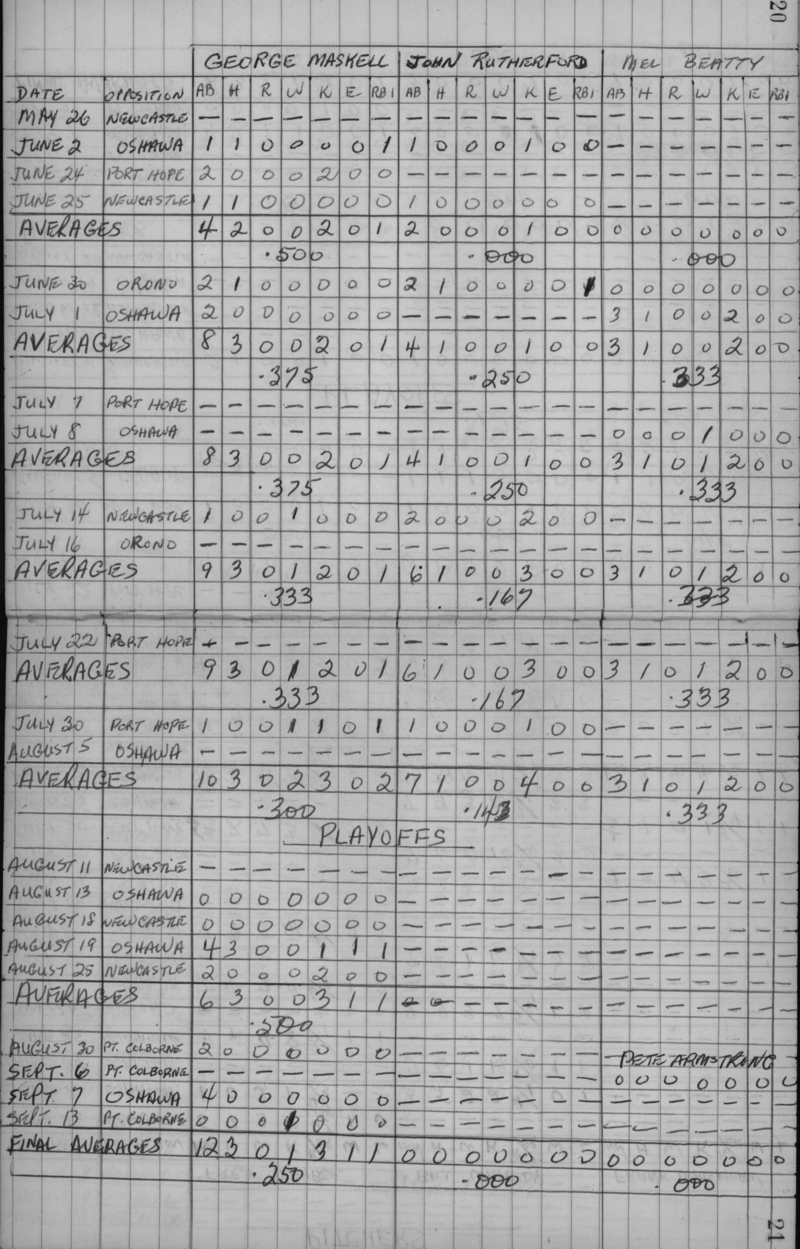 20
GEORGE MASKELL JOHN RUTHERFORD MEL BEATTY
DATE OPPOSITION AB H R W K E RBI AB H R W K E RBI AB H R W K E RBI
MAY 26 NEWCASTLE — — — — — — — — — — — — — — — — — — — — —
JUNE 2 OSHAWA 1 1 0 0 0 0 1 1 0 0 0 1 0 0 — — — — — — —
JUNE 24 PORT HOPE 2 0 0 0 2 0 0 — — — — — — — — — — — — — —
JUNE 25 NEWCASTLE 1 1 0 0 0 0 0 1 0 0 0 0 0 0 — — — — — — —
AVERAGES 4 2 0 0 2 0 1 2 0 0 0 1 0 0 0 0 0 0 0 0 0
.500 .000 .000
JUNE 30 ORONO 2 1 0 0 0 0 0 2 1 0 0 0 0 1 0 0 0 0 0 0 0
JULY 1 OSHAWA 2 0 0 0 0 0 0 — — — — — — — 3 1 0 0 2 0 0
AVERAGES 8 3 0 0 2 0 1 4 1 0 0 1 0 0 3 1 0 0 2 0 0
.375 .250 .333
JULY 7 PORT HOPE — — — — — — — — — — — — — — — — — — — — —
JULY 8 OSHAWA — — — — — — — — — — — — — — 0 0 0 1 0 0 0
AVERAGES 8 3 0 0 2 0 1 4 1 0 0 1 0 0 3 1 0 1 2 0 0
.375 .250 .333
JULY 14 NEWCASTLE 1 0 0 1 0 0 0 2 0 0 0 2 0 0 — — — — — — —
JULY 16 ORONO — — — — — — — — — — — — — — — — — — — — —
AVERAGES 9 3 0 1 2 0 1 6 1 0 0 3 0 0 3 1 0 1 2 0 0
.333 .167 .333
JULY 22 PORT HOPE — — — — — — — — — — — — — — — — — — — — —
AVERAGES 9 3 0 1 2 0 1 6 1 0 0 3 0 0 3 1 0 1 2 0 0
.333 .167 .333
JULY 30 PORT HOPE 1 0 0 1 1 0 1 1 0 0 0 1 0 0 — — — — — — —
AUGUST 5 OSHAWA — — — — — — — — — — — — — — — — — — — — —
AVERAGES 10 3 0 2 3 0 2 7 1 0 0 4 0 0 3 1 0 1 2 0 0
.300 .143 .333
PLAYOFFS
AUGUST 11 NEWCASTLE — — — — — — — — — — — — — — — — — — — — —
AUGUST 13 OSHAWA 0 0 0 0 0 0 0 — — — — — — — — — — — — — —
AUGUST 18 NEWCASTLE 0 0 0 0 0 0 0 — — — — — — — — — — — — — —
AUGUST 19 OSHAWA 4 3 0 0 1 1 1 — — — — — — — — — — — — — —
AUGUST 25 NEWCASTLE 2 0 0 0 2 0 0 — — — — — — — — — — — — — —
AVERAGES 6 3 0 0 3 1 1 — — — — — — — — — — — — — —
.500
AUGUST 30 PT. COLBORNE 2 0 0 0 0 0 0 — — — — — — — PETE ARMSTRONG
SEPT. 6 PT. COLBORNE — — — — — — — — — — — — — — 0 0 0 0 0 0 0
SEPT. 7 OSHAWA 4 0 0 0 0 0 0 — — — — — — — — — — — — — —
SEPT. 13 PT. COLBORNE 0 0 0 1 0 0 0 — — — — — — — — — — — — — —
FINAL AVERAGES 12 3 0 1 3 1 1 0 0 0 0 0 0 0 0 0 0 0 0 0 0
.250 .000 .000
21